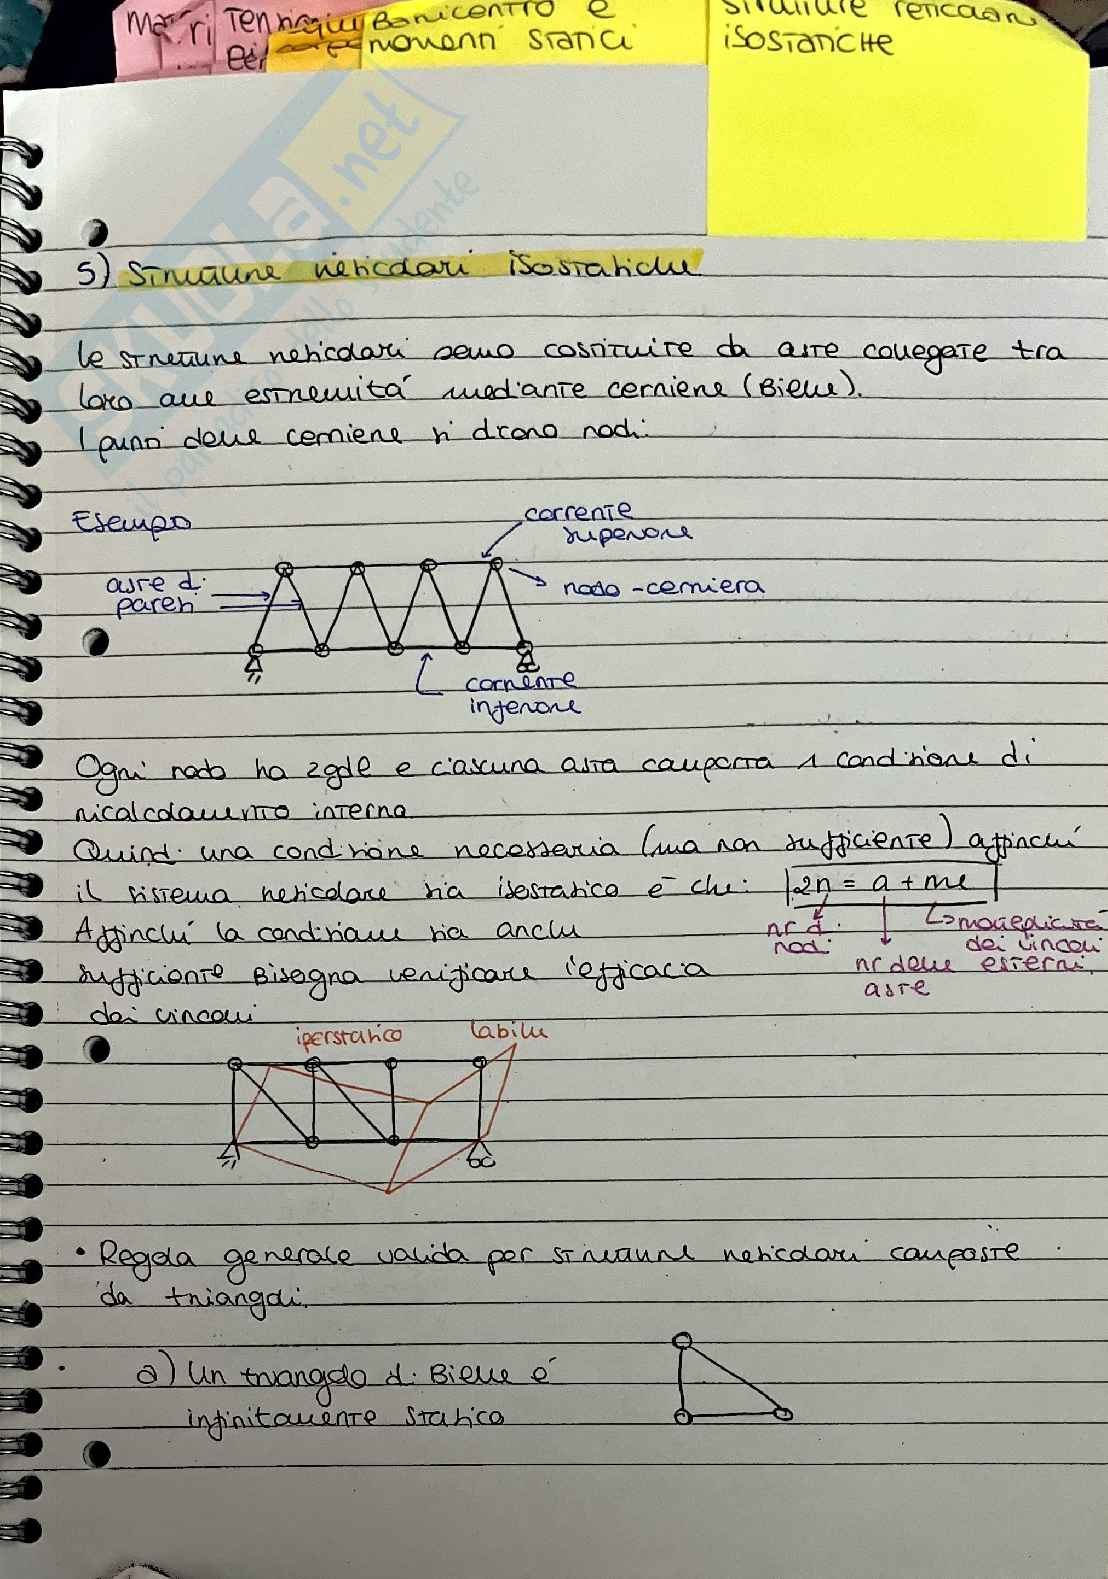 Baricentro e
momenti statici
strutture reticolari
isostatiche
5) Strutture reticolari isostatiche
Le strutture reticolari sono costituite da aste collegate tra
loro alle estremità mediante cerniere (Bielle).
I punti delle cerniere si dicono nodi.
Esempio
corrente
superiore
aste di
pareti
nodo-cerniera
corrente
inferiore
Ogni nodo ha 2gdl e ciascuna asta comporta 1 condizione di
interno
Quindi una condizione necessaria (ma non sufficiente) affinché
il sistema reticolare sia isostatico è che: 2n = a + me
nr di
nodi
nr delle
aste
molteplicità
dei vincoli
esterni.
Affinché la condizione sia anche
sufficiente Bisogna verificare l'efficacia
dei vincoli
iperstatico
labile
• Regola generale valida per strutture reticolari composte
da triangoli.
a) Un triangolo di Bielle è
infinitamente statico
SKUOLA.net